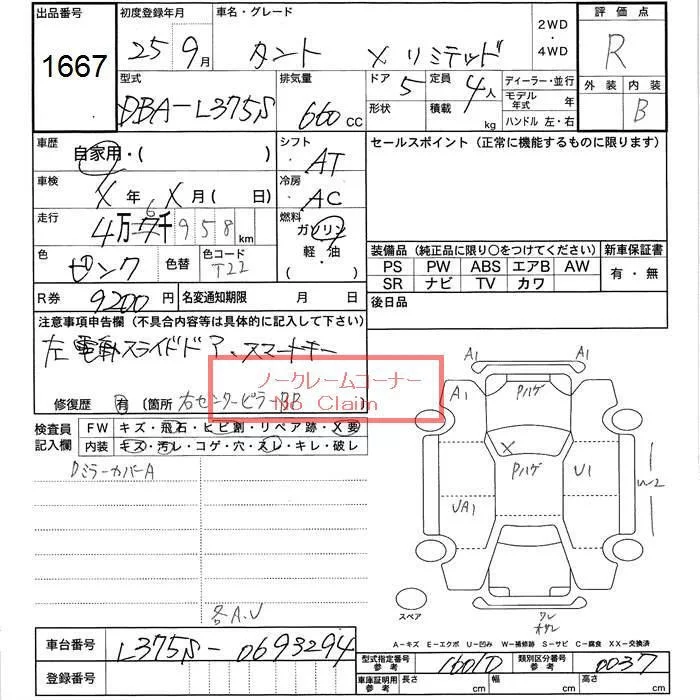 出品番号
1667
初度登録年月
25 9月
車名・グレード
タント X リミテッド
2WD
・
4WD
評価点
R
外装 内装
B
型式
DBA-L375S
排気量
660 CC
ドア 5
形状
定員 4人
積載 kg
ディーラー・並行
モデル年式 年
ハンドル 左・右
車歴
自家用・( )
シフト
AT
セールスポイント(正常に機能するものに限ります)
車検
X 年 X 月( 日)
冷房
AC
走行
4万6千958km
燃料
ガソリン
軽・油
( ・ )
色
ピンク
色替
色コード
T22
装備品(純正品に限り○をつけてください)
新車保証書
PS PW ABS エアB AW
SR ナビ TV カワ
有・無
R券
9200円
名変通知期限 月 日
後日品
注意事項申告欄(不具合内容等は具体的に記入して下さい)
左電動スライドドア、スマートキー
ノークレームコーナー
No Claim
修復歴 有 〔箇所 右センターピラー BP 〕
検査員
記入欄
FW キズ・飛石・ヒビ割・リペア跡・X要
内装 キズ・汚レ・コゲ・穴・スレ・キレ・破レ
DミラーカバーA
各A.U
A1
A1
A1
Pハゲ
X
Pハゲ
U1
UA1
W2
スペア
ワレ
A・キズ E・エクボ U・凹み W・補修跡 S・サビ C・腐食 XX・交換済
車台番号
L375S-0693294
登録番号
型式指定番号
参考
16010
類別区分番号
参考
0037
車庫証明用
参考
長さ cm
幅 cm
高さ cm